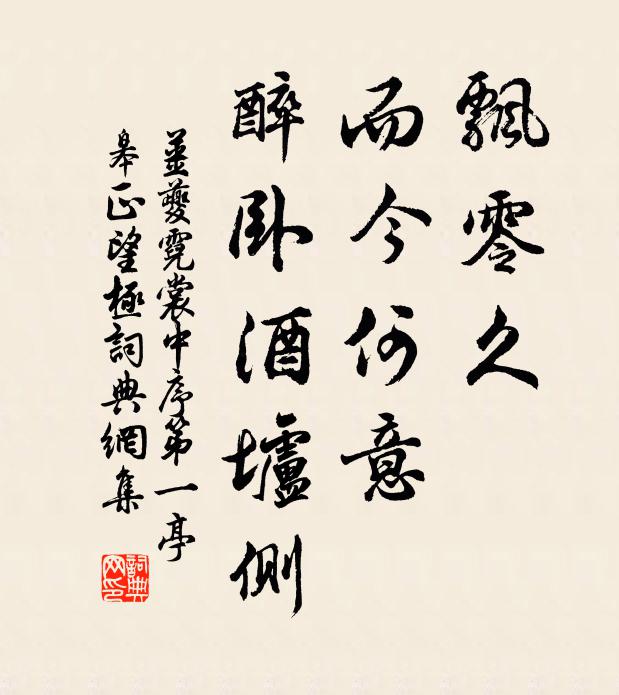 飄零久
而今何意
醉卧酒壚側
姜夔霓裳中序第一亭
皋正望極詞典網集
詞典
网印